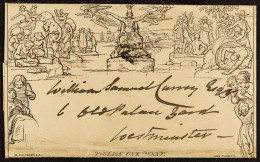 William Samuel Currey Esq
6 Old Palace Yard
Westminster
POSTAGE ONE PENNY